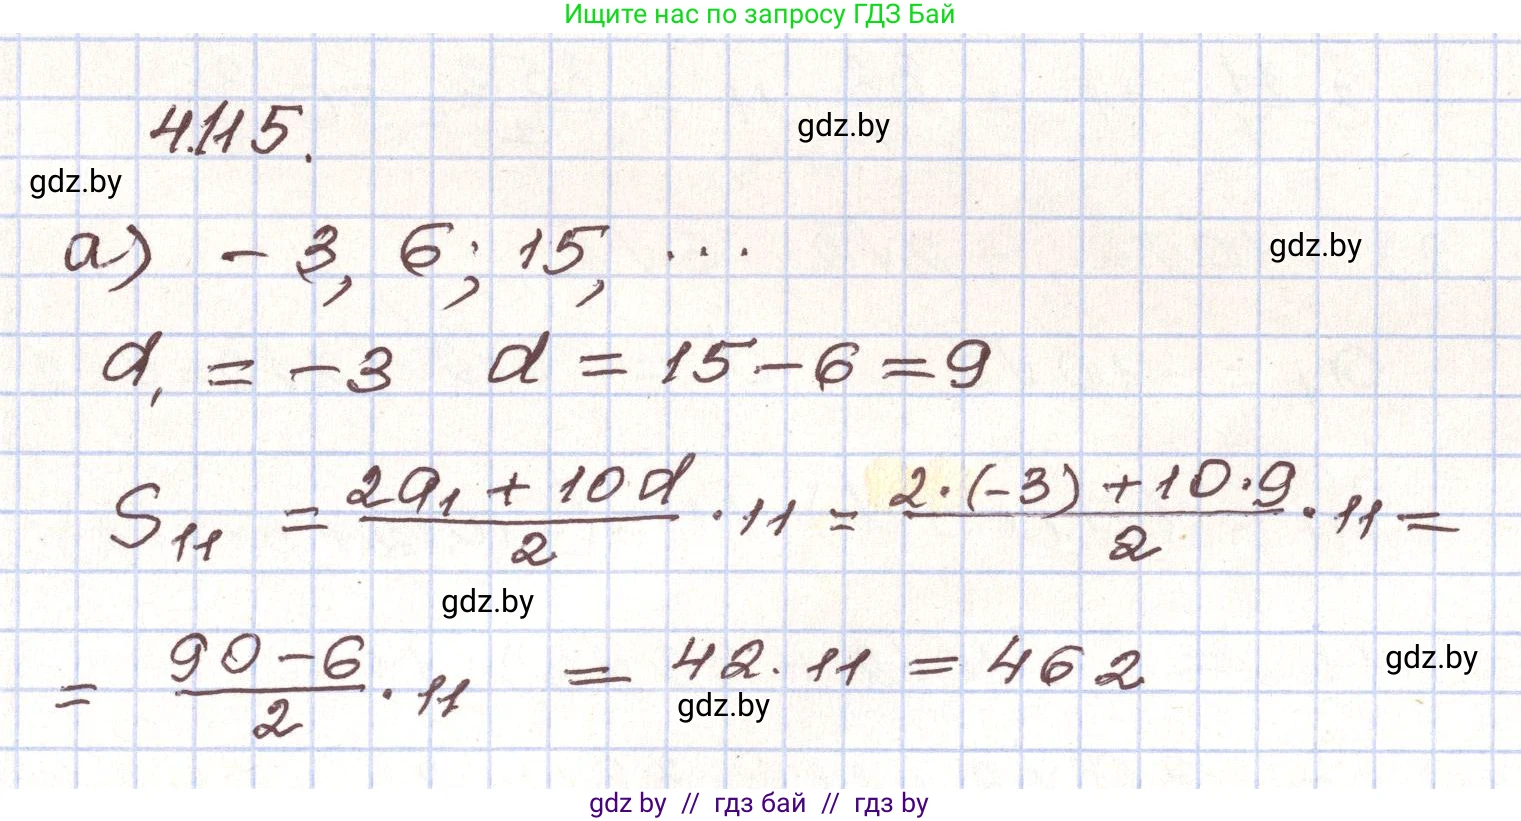 Ищите нас по запросу ГДЗ Бай
4.115.
gdz.by
gdz.by
а) - 3, 6; 15, ...
gdz.by
d₁ = -3 d = 15 - 6 = 9
S₁₁ = (2a₁ + 10d)/2 · 11 = (2·(-3) + 10·9)/2 · 11 =
gdz.by
= (90 - 6)/2 · 11 = 42 · 11 = 462
gdz.by
gdz.by
gdz by // гдз бай // гдз by